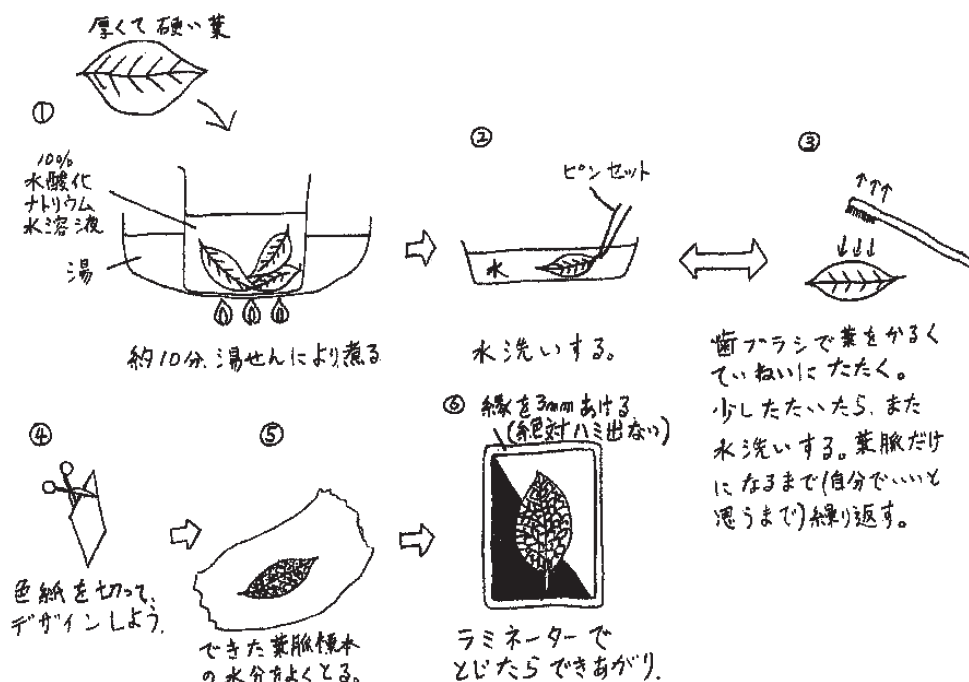 厚くて硬い葉
①
10%
水酸化
ナトリウム
水溶液
湯
約10分、湯せんにより煮る
②
ピンセット
水
水洗いする。
③
歯ブラシで葉をかるく
ていねいにたたく。
少したたいたら、また
水洗いする。葉脈だけ
になるまで(自分でいいと
思うまで)繰り返す。
④
色紙を切って、
デザインしよう。
⑤
できた葉脈標本
の水分をよくとる。
⑥ 縁を3mmあける
(絶対ハミ出ない)
ラミネーターで
とじたらできあがり。